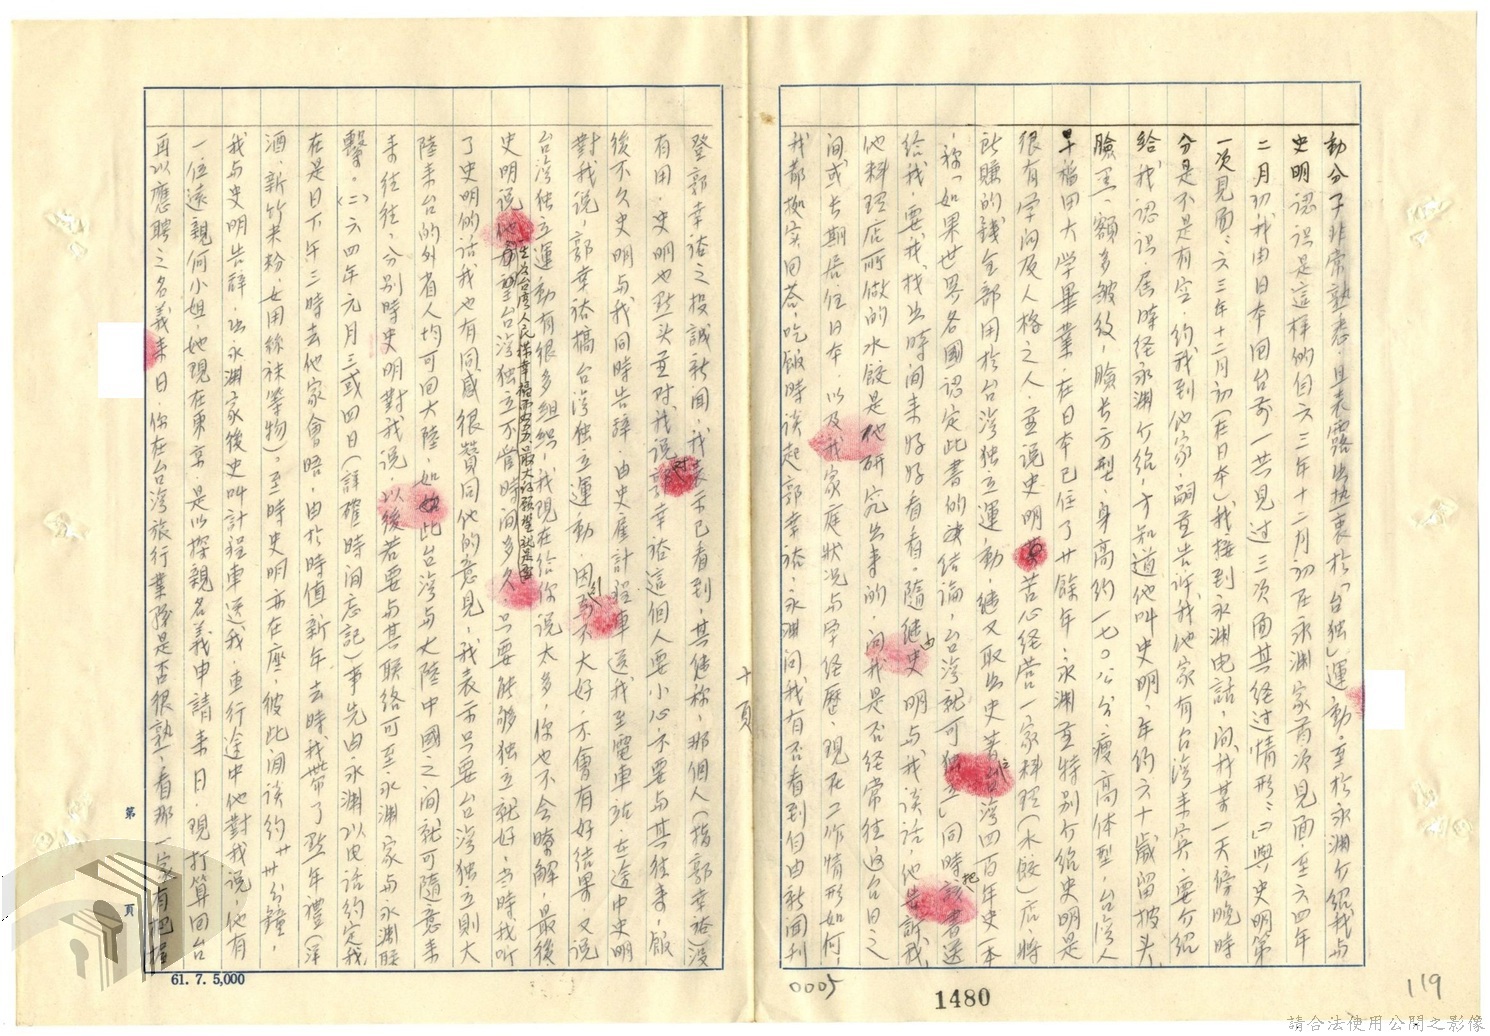 動分子非常熟悉,且表露出热衷於「台独」運動,至於永渊介紹我与
史明認識是這樣的自六三年十二月初在永渊家首次見面,至六四年
二月初我由日本回台前一共見过三次面其経过情形:㈠與史明第
一次見面:六三年十二月初(在日本)我接到永渊电話,问我某一天傍晚時
分是不是有空,约我到他家,嗣並告訴我他家有台湾来客,要介紹
給我認识,届時経永渊介紹,才知道他叫史明,年约六十歲留披头
臉黑、額多皺紋,臉长方型,身高约一七〇公分,瘦高体型,台湾人
早稲田大学畢業,在日本已住了廿餘年:永渊並特别介紹史明是
很有学问及人格之人,並說史明苦心経营一家料理(水餃)店,將
所賺的錢全部用於台湾独立運動,継又取出史著台湾四百年史一本
,称「如果世界各國認定此書的结論,台湾就可独立」同時把該書送
給我,要我找出時间来好好看看。隨由史明与我谈话,他告訴我
他料理店所做的水餃是他研究出来的,问我是否経常往返台日之
间或长期居住日本,以及我家庭狀况与学経歷,現在工作情形如何,
我都按实回荅,吃飯時谈起郭幸裕,永渊问我有否看到自由新闻刊
十頁
登郭幸裕之投誠新闻,我表示已看到,其継称,那個人(指郭幸裕)没
有用,史明也點头並对我说对郭幸裕這個人要小心不要与其往来,飯
後不久史明与我同時告辞,由史雇計程車送我至電車站,在途中史明
對我说,郭幸裕搞台湾独立運動,因 不大好,不會有好结果,又说
台湾独立運動有很多组织,我現在给你说太多,你也不会瞭解,最後
史明说他 生为台湾人民謀幸福而努力,最大的願望就是
望台湾独立不管時间多久,只要能够独立就好,当時我听
了史明的话我也有同感很贊同他的意見,我表示只要台湾独立則大
陸来台的外省人均可回大陸,如此台湾与大陸中國之间就可隨意来
来往往,分别時史明對我说,以後若要与其联络可至永渊家与永渊联
繫。㈡六四年元月三或四日(詳確時间忘記)事先由永渊以电话约定我
在是日下午三時去他家會晤,由於時值新年,去時我带了點年禮(洋
酒,新竹米粉,女用絲袜等物)。至時史明亦在座,彼此间谈约廿分鐘,
我与史明告辞,出永渊家後史叫計程車送我,車行途中他對我说,他有
一位遠親何小姐,她現在東京,是以探親名義申請来日,現打算回台
再以應聘之名義来日,你在台湾旅行業界是否很熟,看那一家有把握
第 頁
61. 7. 5,000
0005
1480
119
請合法使用公開之影像